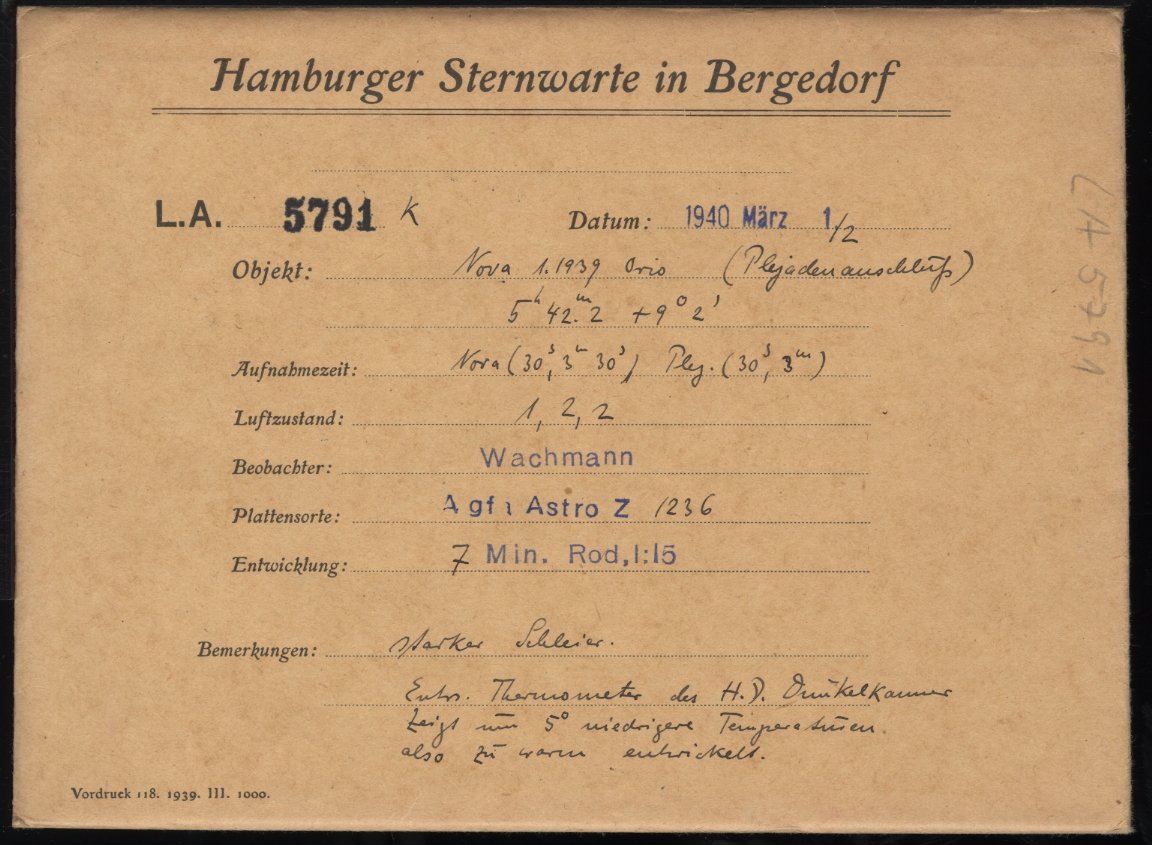 Hamburger Sternwarte in Bergedorf
L.A. 5791 K Datum: 1940 März 1/2
Objekt: Nova 1.1939 Orio (Plejadenanschluß)
5ʰ 42.ᵐ2 +9° 2'
Aufnahmezeit: Nova (30ˢ, 3ᵐ 30ˢ) Plej. (30ˢ, 3ᵐ)
Luftzustand: 1, 2, 2
Beobachter: Wachmann
Plattensorte: Agfa Astro Z 1236
Entwicklung: 7 Min. Rod, 1:15
Bemerkungen: starker Schleier.
Entw. Thermometer des H.D. Dunkelkammer
zeigt um 5° niedrigere Temperaturen.
also zu warm entwickelt.
Vordruck 118. 1939. III. 1000.
LA 5791